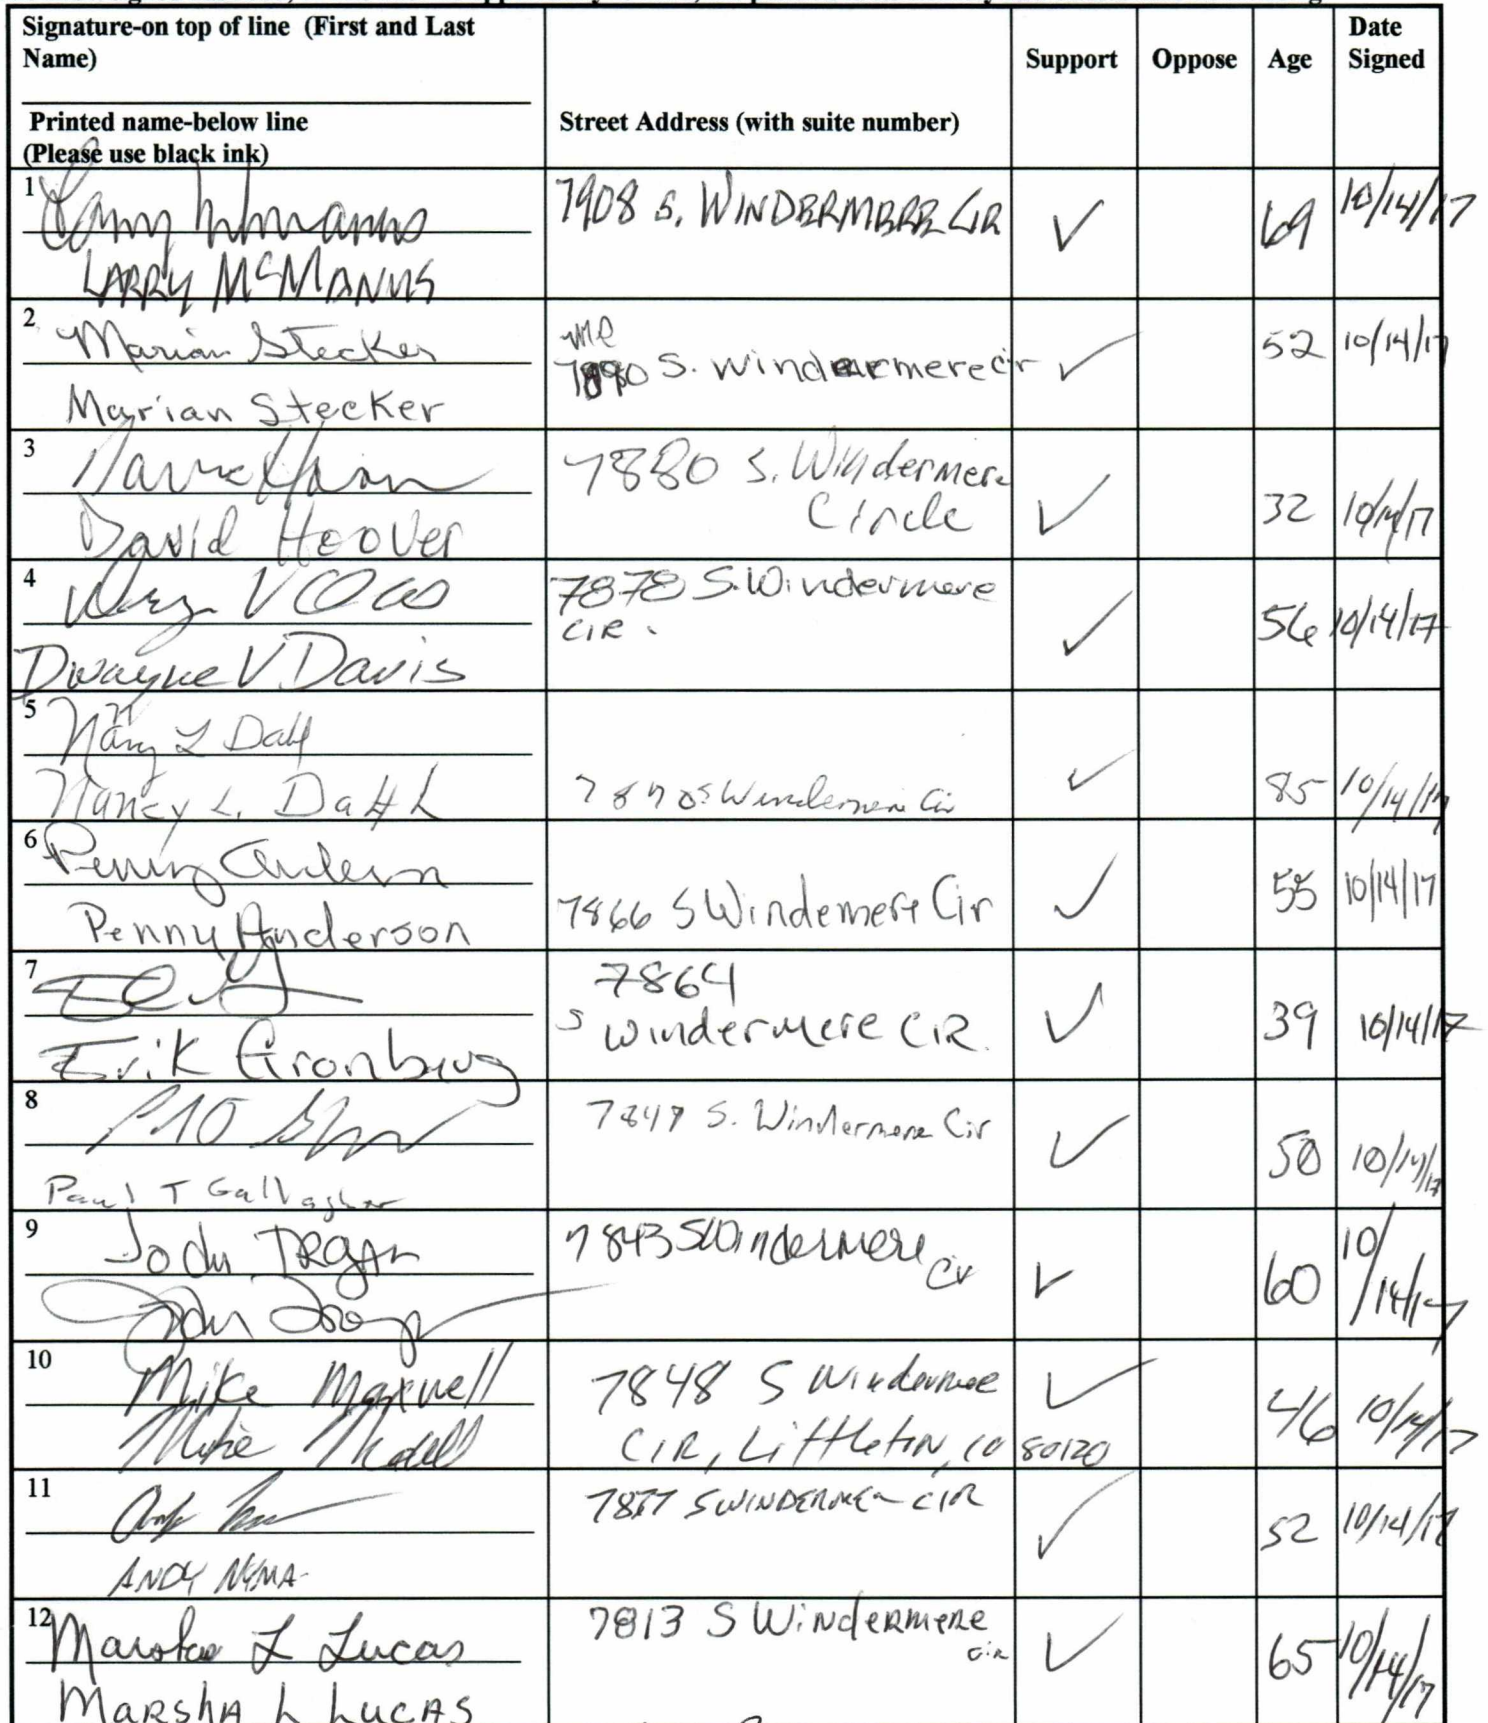 Signature-on top of line (First and Last
Name)
Printed name-below line
(Please use black ink)
Street Address (with suite number)
Support
Oppose
Age
Date
Signed
1
LARRY MCMANUS
7908 S. WINDERMERE CIR
69
10/14/17
2
Marian Stecker
Marian Stecker
7890 S. Windermere cir
52
10/14/17
3
David Hoover
7880 S. Windermere
Circle
32
10/14/17
4
Dwayne V Davis
7878 S. Windermere
CIR.
56
10/14/17
5
Nancy L Dahl
Nancy L. DaHL
S Windermere Cir
85
10/14/17
6
Penny Anderson
Penny Anderson
7866 S Windemere Cir
55
10/14/17
7
Erik Gronberg
7864
S Windermere CIR.
39
10/14/17
8
Paul T Gallagher
S. Windermere Cir
50
10/14/17
9
Jody
7843 S Windermere
Cir
60
10
/14/17
10
Mike Maxwell
Mike
7848 S Windermere
CIR, Littleton, CO 80120
46
10/14/17
11
ANDY
S WINDERMERE CIR
52
10/14/17
12
Marsha L Lucas
MARSHA L LUCAS
7813 S Windermere
Cir
65
10/14/17